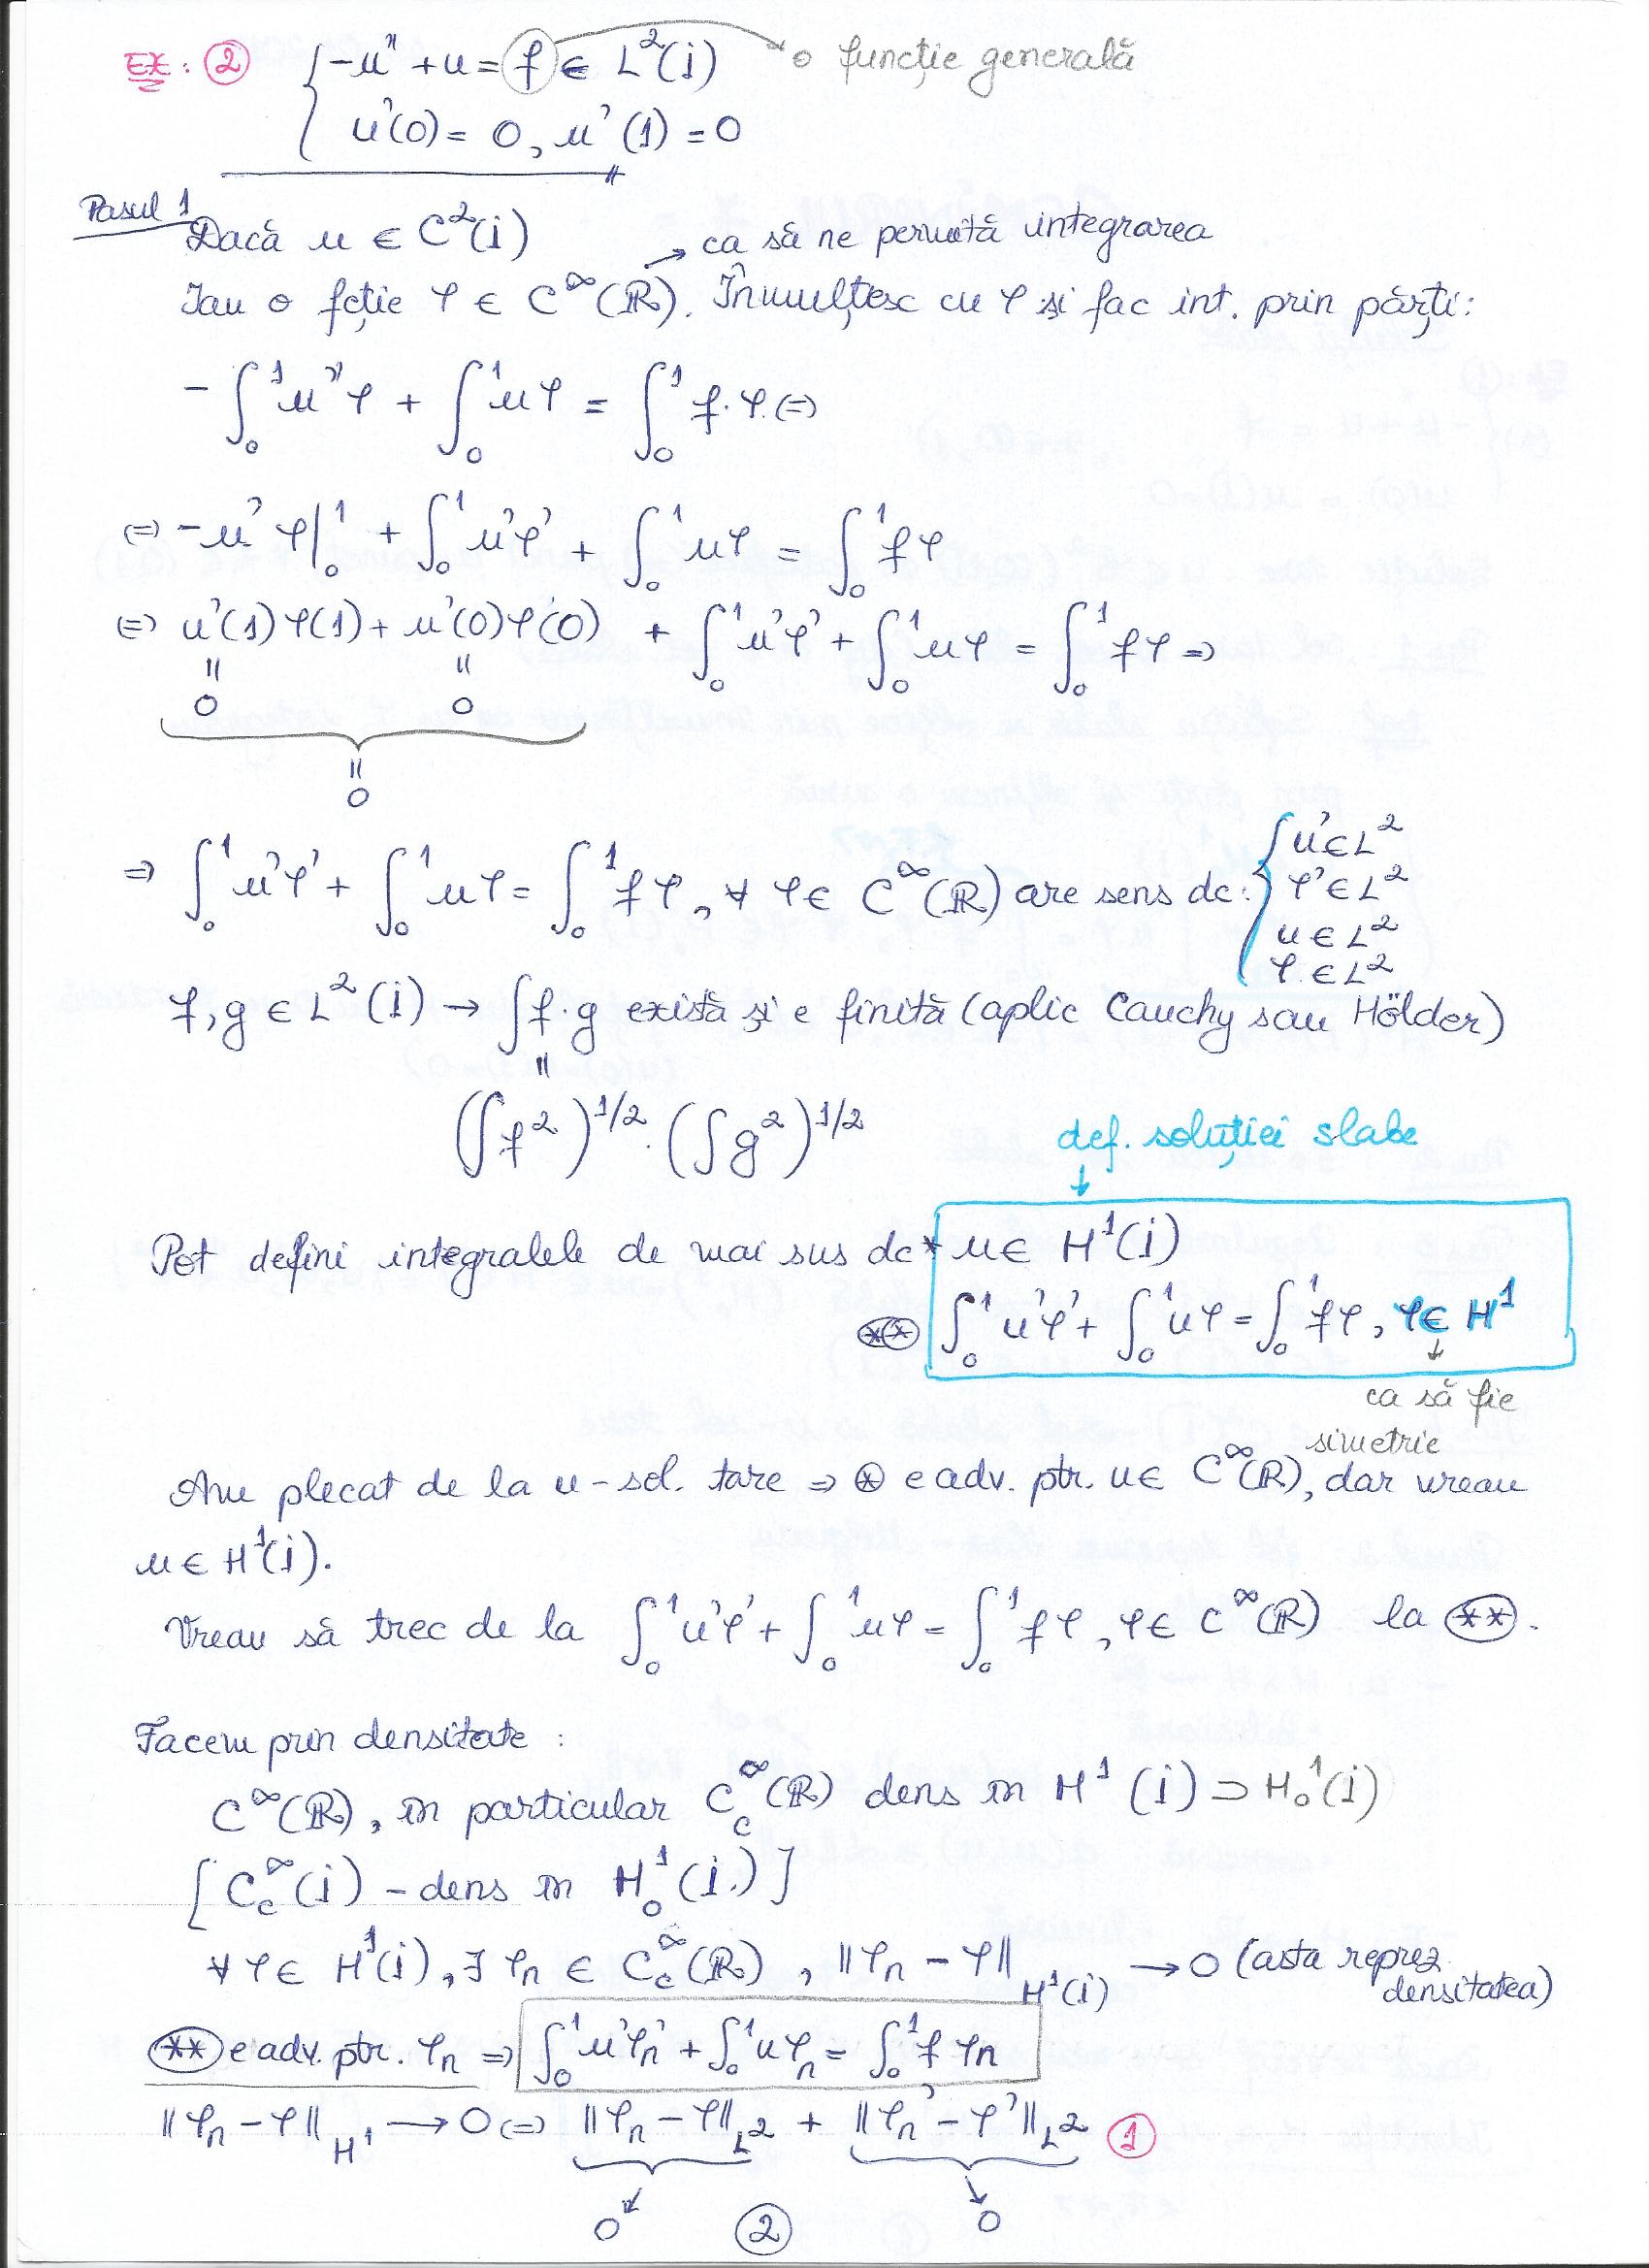 EX: ② { -u'' + u = f ∈ L²(i) → o funcție generală
u'(0) = 0, u'(1) = 0
Pasul 1
Dacă u ∈ C²(i)
→ ca să ne permită integrarea
Iau o fcție φ ∈ C^∞(ℝ). Înmulțesc cu φ și fac int. prin părți:
- ∫₀¹ u''φ + ∫₀¹ uφ = ∫₀¹ f·φ (=)
(=) -u'φ|₀¹ + ∫₀¹ u'φ' + ∫₀¹ uφ = ∫₀¹ fφ
(=) u'(1)φ(1) + u'(0)φ(0) + ∫₀¹ u'φ' + ∫₀¹ uφ = ∫₀¹ fφ ⇒
= =
0 0
=
0
⇒ ∫₀¹ u'φ' + ∫₀¹ uφ = ∫₀¹ fφ, ∀ φ ∈ C^∞(ℝ) are sens dc: { u' ∈ L²
φ' ∈ L²
u ∈ L²
φ ∈ L²
f, g ∈ L²(i) → ∫f·g există și e finită (aplic Cauchy sau Hölder)
=
(∫f²)^1/2 · (∫g²)^1/2
def. soluției slabe
↓
Pot defini integralele de mai sus dc * u ∈ H¹(i)
(**) ∫₀¹ u'φ' + ∫₀¹ uφ = ∫₀¹ fφ, φ ∈ H¹
↓
ca să fie
simetric
Am plecat de la u - sol. tare ⇒ (*) e adv. ptr. u ∈ C^∞(ℝ), dar vreau
u ∈ H¹(i).
Vreau să trec de la ∫₀¹ u'φ' + ∫₀¹ uφ = ∫₀¹ fφ, φ ∈ C^∞(ℝ) la (**).
Facem prin densitate :
C^∞(ℝ), în particular C_c^∞(ℝ) dens în H¹(i) ⊃ H₀¹(i)
[C_c^∞(i) - dens în H₀¹(i)]
∀ φ ∈ H¹(i), ∃ φₙ ∈ C_c^∞(ℝ), ||φₙ - φ||_H¹(i) → 0 (asta reprez.
densitatea)
(**) e adv. ptr. φₙ ⇒ ∫₀¹ u'φₙ' + ∫₀¹ uφₙ = ∫₀¹ f φₙ
||φₙ - φ||_H¹ → 0 (=) ||φₙ - φ||_L² + ||φₙ' - φ'||_L² ①
0 ② 0